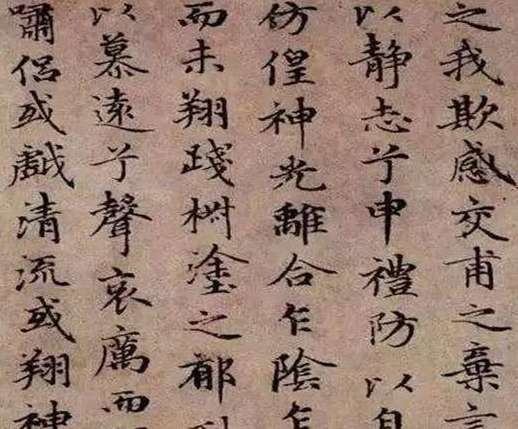 之我欺感交甫之棄言
以靜志兮申禮防以自
仿偟神光離合乍陰乍
而未翔踐椒塗之郁
以慕遠兮聲哀厲而
嘯侶或戲清流或翔神